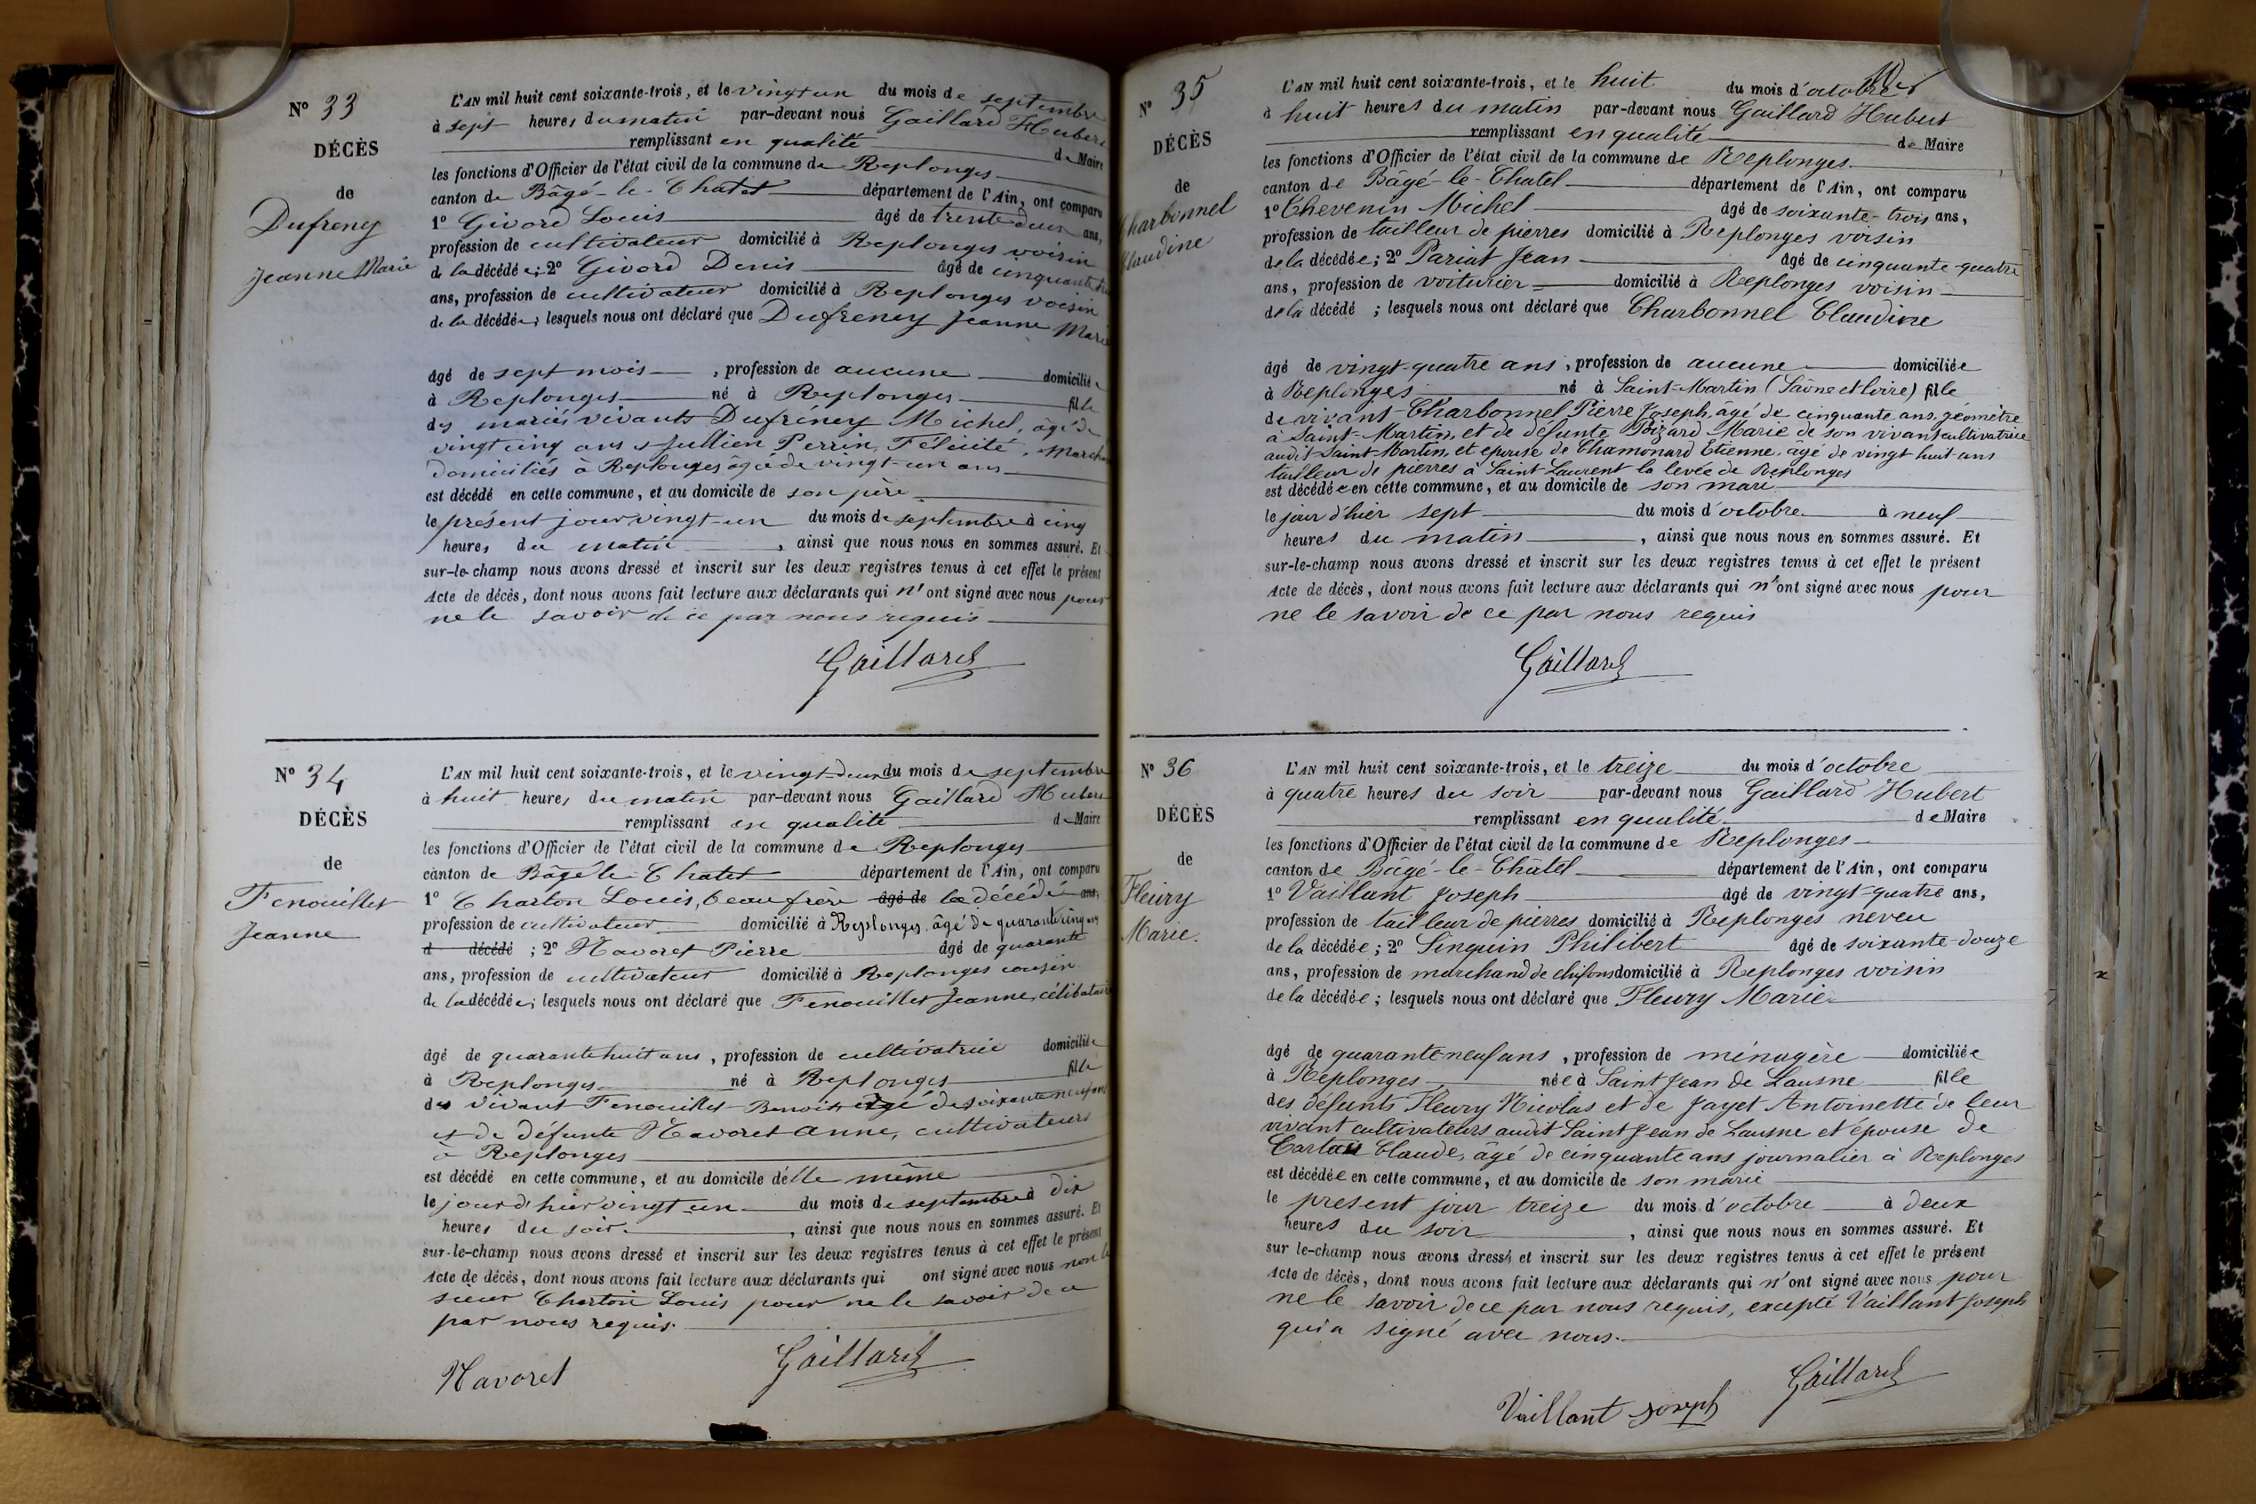 N° 33
DÉCÈS
de
Dufreney
Jeanne Marie
L'AN mil huit cent soixante-trois, et le vingt un du mois de septembre
à sept heures du matin par-devant nous Gaillard Hubert
remplissant en qualité de Maire
les fonctions d'Officier de l'état civil de la commune de Replonges
canton de Bâgé-le-Chatel département de l'Ain, ont comparu
1° Givord Louis âgé de trente deux ans,
profession de cultivateur domicilié à Replonges voisin
de la décédée; 2° Givord Denis âgé de cinquante
ans, profession de cultivateur domicilié à Replonges voisin
de la décédée; lesquels nous ont déclaré que Dufreney Jeanne Marie
âgé de sept mois, profession de aucune domiciliée
à Replonges né à Replonges fille
des mariés vivants Dufréney Michel, âgé de
vingt cinq ans Perrin, Félicité,
domiciliés à Replonges âgée de vingt-un ans
est décédé en cette commune, et au domicile de son père
le présent jour vingt-un du mois de septembre à cinq
heures du matin, ainsi que nous nous en sommes assuré. Et
sur-le-champ nous avons dressé et inscrit sur les deux registres tenus à cet effet le présent
Acte de décès, dont nous avons fait lecture aux déclarants qui n'ont signé avec nous pour
ne le savoir de ce par nous requis
Gaillard
N° 34
DÉCÈS
de
Fenouillet
Jeanne
L'AN mil huit cent soixante-trois, et le vingt-deux du mois de septembre
à huit heures du matin par-devant nous Gaillard Hubert
remplissant en qualité de Maire
les fonctions d'Officier de l'état civil de la commune de Replonges
canton de Bâgé le Chatel département de l'Ain, ont comparu
1° Charton Louis, beau frère âgé de la décédée ans,
profession de cultivateur domicilié à Replonges, âgé de quarante cinq ans
d décédé; 2° Navoret Pierre âgé de quarante
ans, profession de cultivateur domicilié à Replonges cousin
de la décédée; lesquels nous ont déclaré que Fenouillet Jeanne, célibataire
âgé de quarante huit ans, profession de cultivatrice domiciliée
à Replonges né à Replonges fille
des vivant Fenouillet Benoit âgé de soixante neuf ans
et de défunte Navoret Anne, cultivateurs
à Replonges
est décédé en cette commune, et au domicile d'elle même
le jour d'hier vingt-un du mois de septembre à dix
heures du soir, ainsi que nous nous en sommes assuré. Et
sur-le-champ nous avons dressé et inscrit sur les deux registres tenus à cet effet le présent
Acte de décès, dont nous avons fait lecture aux déclarants qui ont signé avec nous non le
sieur Charton Louis pour ne le savoir de ce
par nous requis.
Navoret Gaillard
N° 35
DÉCÈS
de
Charbonnel
Claudine
L'AN mil huit cent soixante-trois, et le huit du mois d'octobre
à huit heures du matin par-devant nous Gaillard Hubert
remplissant en qualité de Maire
les fonctions d'Officier de l'état civil de la commune de Replonges
canton de Bâgé-le-Chatel département de l'Ain, ont comparu
1° Chevenin Michel âgé de soixante-trois ans,
profession de tailleur de pierres domicilié à Replonges voisin
de la décédée; 2° Pariat Jean âgé de cinquante-quatre
ans, profession de voiturier domicilié à Replonges voisin
de la décédé; lesquels nous ont déclaré que Charbonnel Claudine
âgé de vingt-quatre ans, profession de aucune domiciliée
à Replonges né à Saint-Martin (Saône et Loire) fille
de vivant Charbonnel Pierre Joseph, âgé de cinquante ans, géomètre
à Saint-Martin, et de défunte Poizard Marie de son vivant cultivatrice
audit Saint-Martin, et épouse de Chamonard Etienne, âgé de vingt huit ans
tailleur de pierres à Saint-Laurent la levée de Replonges
est décédée en cette commune, et au domicile de son mari
le jour d'hier sept du mois d'octobre à neuf
heures du matin, ainsi que nous nous en sommes assuré. Et
sur-le-champ nous avons dressé et inscrit sur les deux registres tenus à cet effet le présent
Acte de décès, dont nous avons fait lecture aux déclarants qui n'ont signé avec nous pour
ne le savoir de ce par nous requis
Gaillard
N° 36
DÉCÈS
de
Fleury
Marie.
L'AN mil huit cent soixante-trois, et le treize du mois d'octobre
à quatre heures du soir par-devant nous Gaillard Hubert
remplissant en qualité de Maire
les fonctions d'Officier de l'état civil de la commune de Replonges
canton de Bâgé-le-Châtel département de l'Ain, ont comparu
1° Vaillant Joseph âgé de vingt-quatre ans,
profession de tailleur de pierres domicilié à Replonges neveu
de la décédée; 2° Singuin Philibert âgé de soixante-douze
ans, profession de marchand de chifons domicilié à Replonges voisin
de la décédée; lesquels nous ont déclaré que Fleury Marie
âgé de quarante neuf ans, profession de ménagère domiciliée
à Replonges née à Saint Jean de Lausne fille
des défunts Fleury Nicolas et de Jayet Antoinette de leur
vivant cultivateurs audit Saint Jean de Lausne et épouse de
Claude, âgé de cinquante ans journalier à Replonges
est décédée en cette commune, et au domicile de son marie
le present jour treize du mois d'octobre à deux
heures du soir, ainsi que nous nous en sommes assuré. Et
sur le-champ nous avons dressé et inscrit sur les deux registres tenus à cet effet le présent
Acte de décès, dont nous avons fait lecture aux déclarants qui n'ont signé avec nous pour
ne le savoir de ce par nous requis, excepté Vaillant Joseph
qui a signé avec nous.
Gaillard
Vaillant Joseph